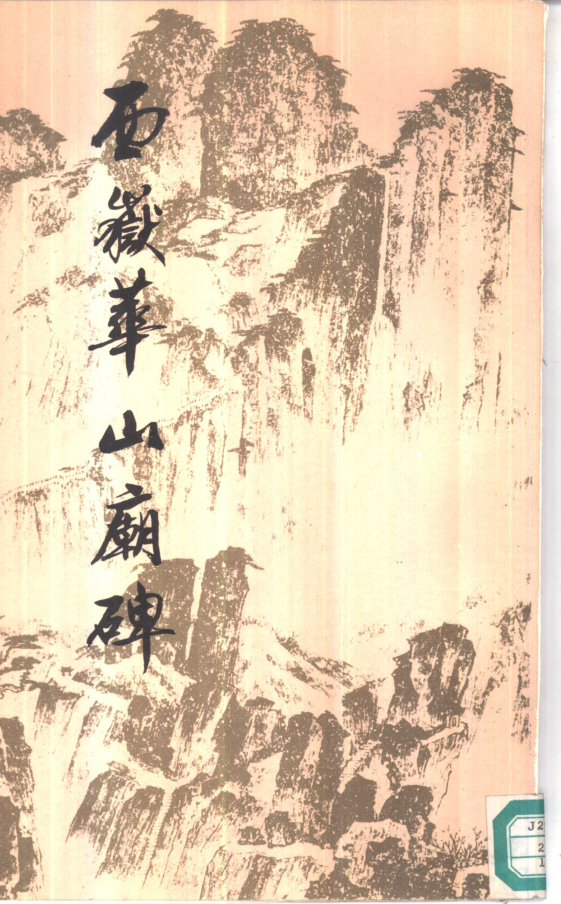 西嶽華山廟碑
J2
2
1